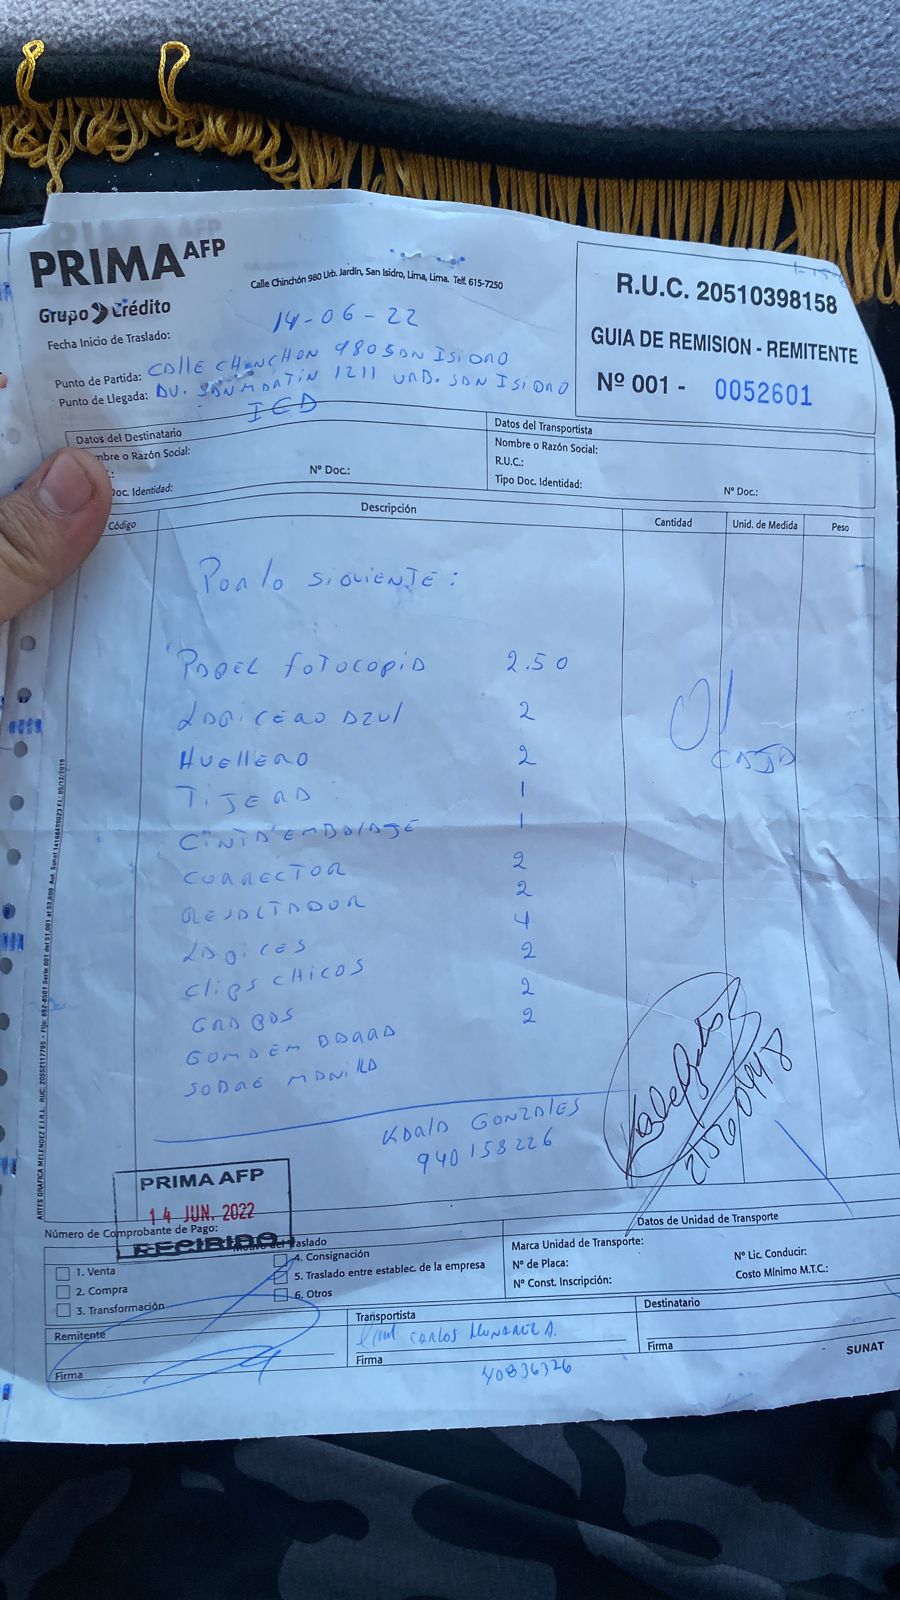 PRIMA AFP
Grupo Crédito
Calle Chinchón 980 Urb. Jardín, San Isidro, Lima, Lima. Telf. 615-7250
R.U.C. 20510398158
GUIA DE REMISION - REMITENTE
Nº 001 - 0052601
Fecha Inicio de Traslado: 14-06-22
Punto de Partida: CALLE CHINCHON 980 SAN ISIDRO
Punto de Llegada: AV. SAN MARTIN 1211 URB. SAN ISIDRO
ICA
Datos del Destinatario
mbre o Razón Social:
Nº Doc.:
Doc. Identidad:
Datos del Transportista
Nombre o Razón Social:
R.U.C.:
Tipo Doc. Identidad:
Nº Doc.:
Código
Descripción
Cantidad
Unid. de Medida
Peso
POR LO SIGUIENTE:
PAPEL FOTOCOPIA 2.50
LAPICERO AZUL 2
HUELLERO 2
TIJERA 1
CINTA EMBALAJE 1
CORRECTOR 2
RESALTADOR 2
LAPICES 4
CLIPS CHICOS 2
GRAPAS 2
GOMA EN BARRA 2
SOBRE MANILA
01 CAJA
KARLA GONZALES
940158226
21520447
ARTES GRAFICA MELENDEZ E.I.R.L. RUC: 20552117795
PRIMA AFP
14 JUN. 2022
RECIBIDO
Número de Comprobante de Pago:
Motivo del Traslado
1. Venta
2. Compra
3. Transformación
4. Consignación
5. Traslado entre establec. de la empresa
6. Otros
Datos de Unidad de Transporte
Marca Unidad de Transporte:
Nº de Placa:
Nº Const. Inscripción:
Nº Lic. Conducir:
Costo Mínimo M.T.C.:
Remitente
Firma
Transportista
CARLOS MUNAREZ A.
Firma
40836326
Destinatario
Firma
SUNAT